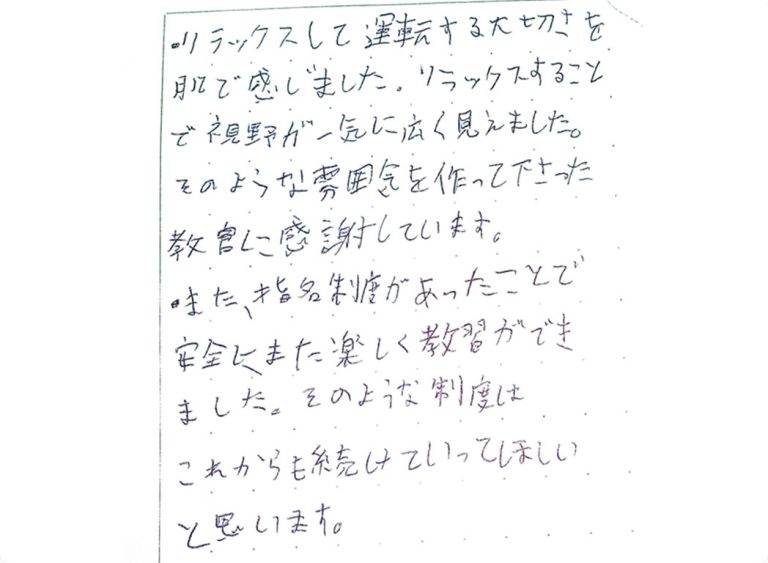 ・リラックスして運転する大切さを
肌で感じました。リラックスすること
で視野が一気に広く見えました。
そのような雰囲気を作って下さった
教官に感謝しています。
・また、指名制度があったことで
安全にまた楽しく教習ができ
ました。そのような制度は
これからも続けていってほしい
と思います。